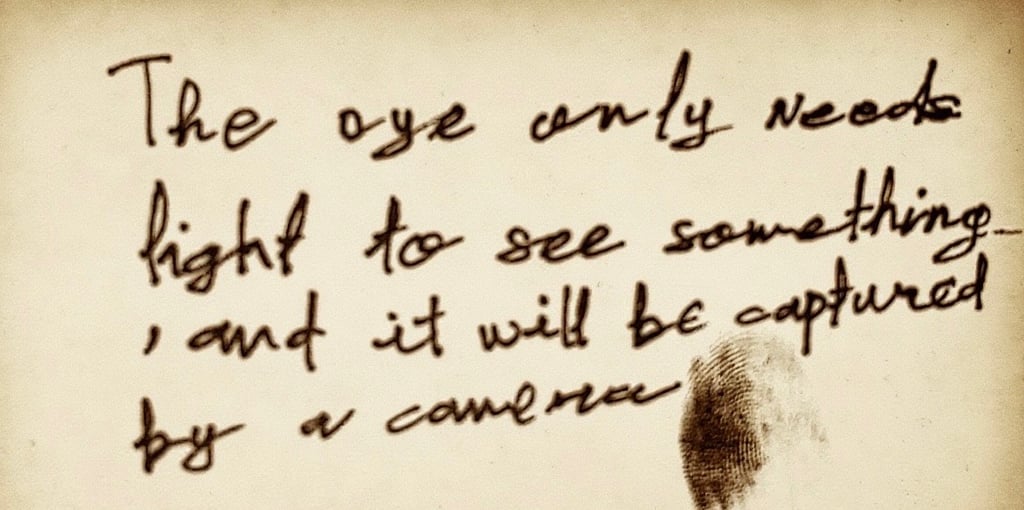 The oye only Needs
light to see something
, and it will be captured
by a camera